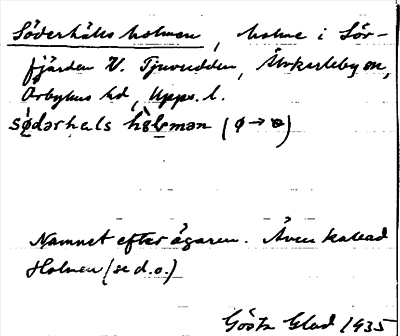 Söderhälls holmen, holme i Lör-
fjärden V. Tjuvudden, Älvkarleby sn,
Örbyhus hd, Upps. l.
sø̀dərhels hòlmən (ø → ɵ)
Namnet efter ägaren. Även kallad
Holmen (se d.o.)
Gösta Glad 1935